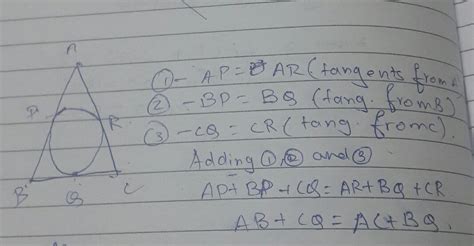 A
P
R
B
Q
C
①- AP = AR (tangents from A
② - BP = BQ (tang. from B)
③ - CQ = CR (tang. from C).
Adding ①, ② and ③
AP + BP + CQ = AR + BQ + CR
AB + CQ = AC + BQ.